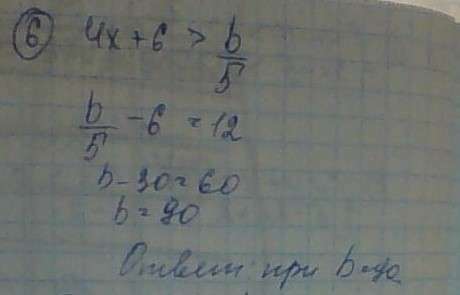 ⑥ 4x+6 > b/5
b/5 - 6 = 12
b - 30 = 60
b = 90
Ответ при b=90